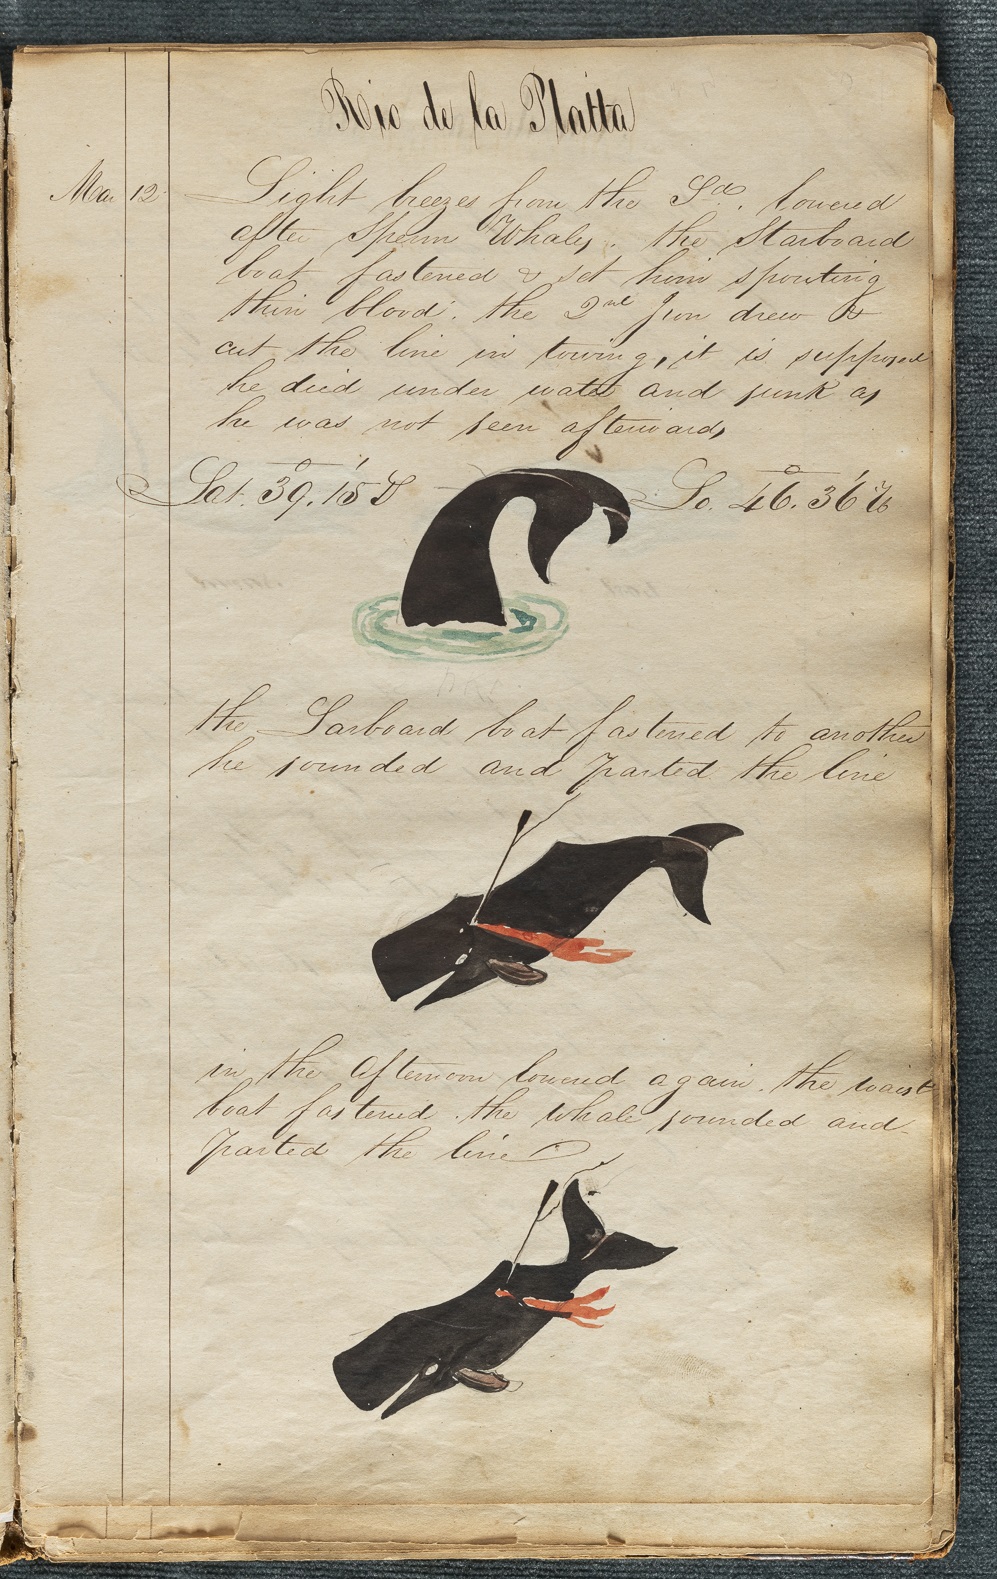 Rio de la Platta
Mar 12 Light breezes from the Sd. lowered
after Sperm Whales. the Starboard
boat fastened & set him spouting
thin blood. the 2nd Iron drew &
cut the line in towing, it is supposed
he died under water and sunk as
he was not seen afterwards
Lat. 39°.15' S Lo. 46°.36' W
the Larboard boat fastened to another
he sounded and parted the line
in the afternoon lowered again. the waist
boat fastened. the whale sounded and
parted the line